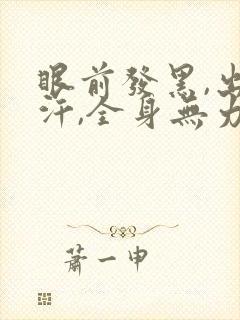 眼前發黑,出
汗,全身無力
蕭一申